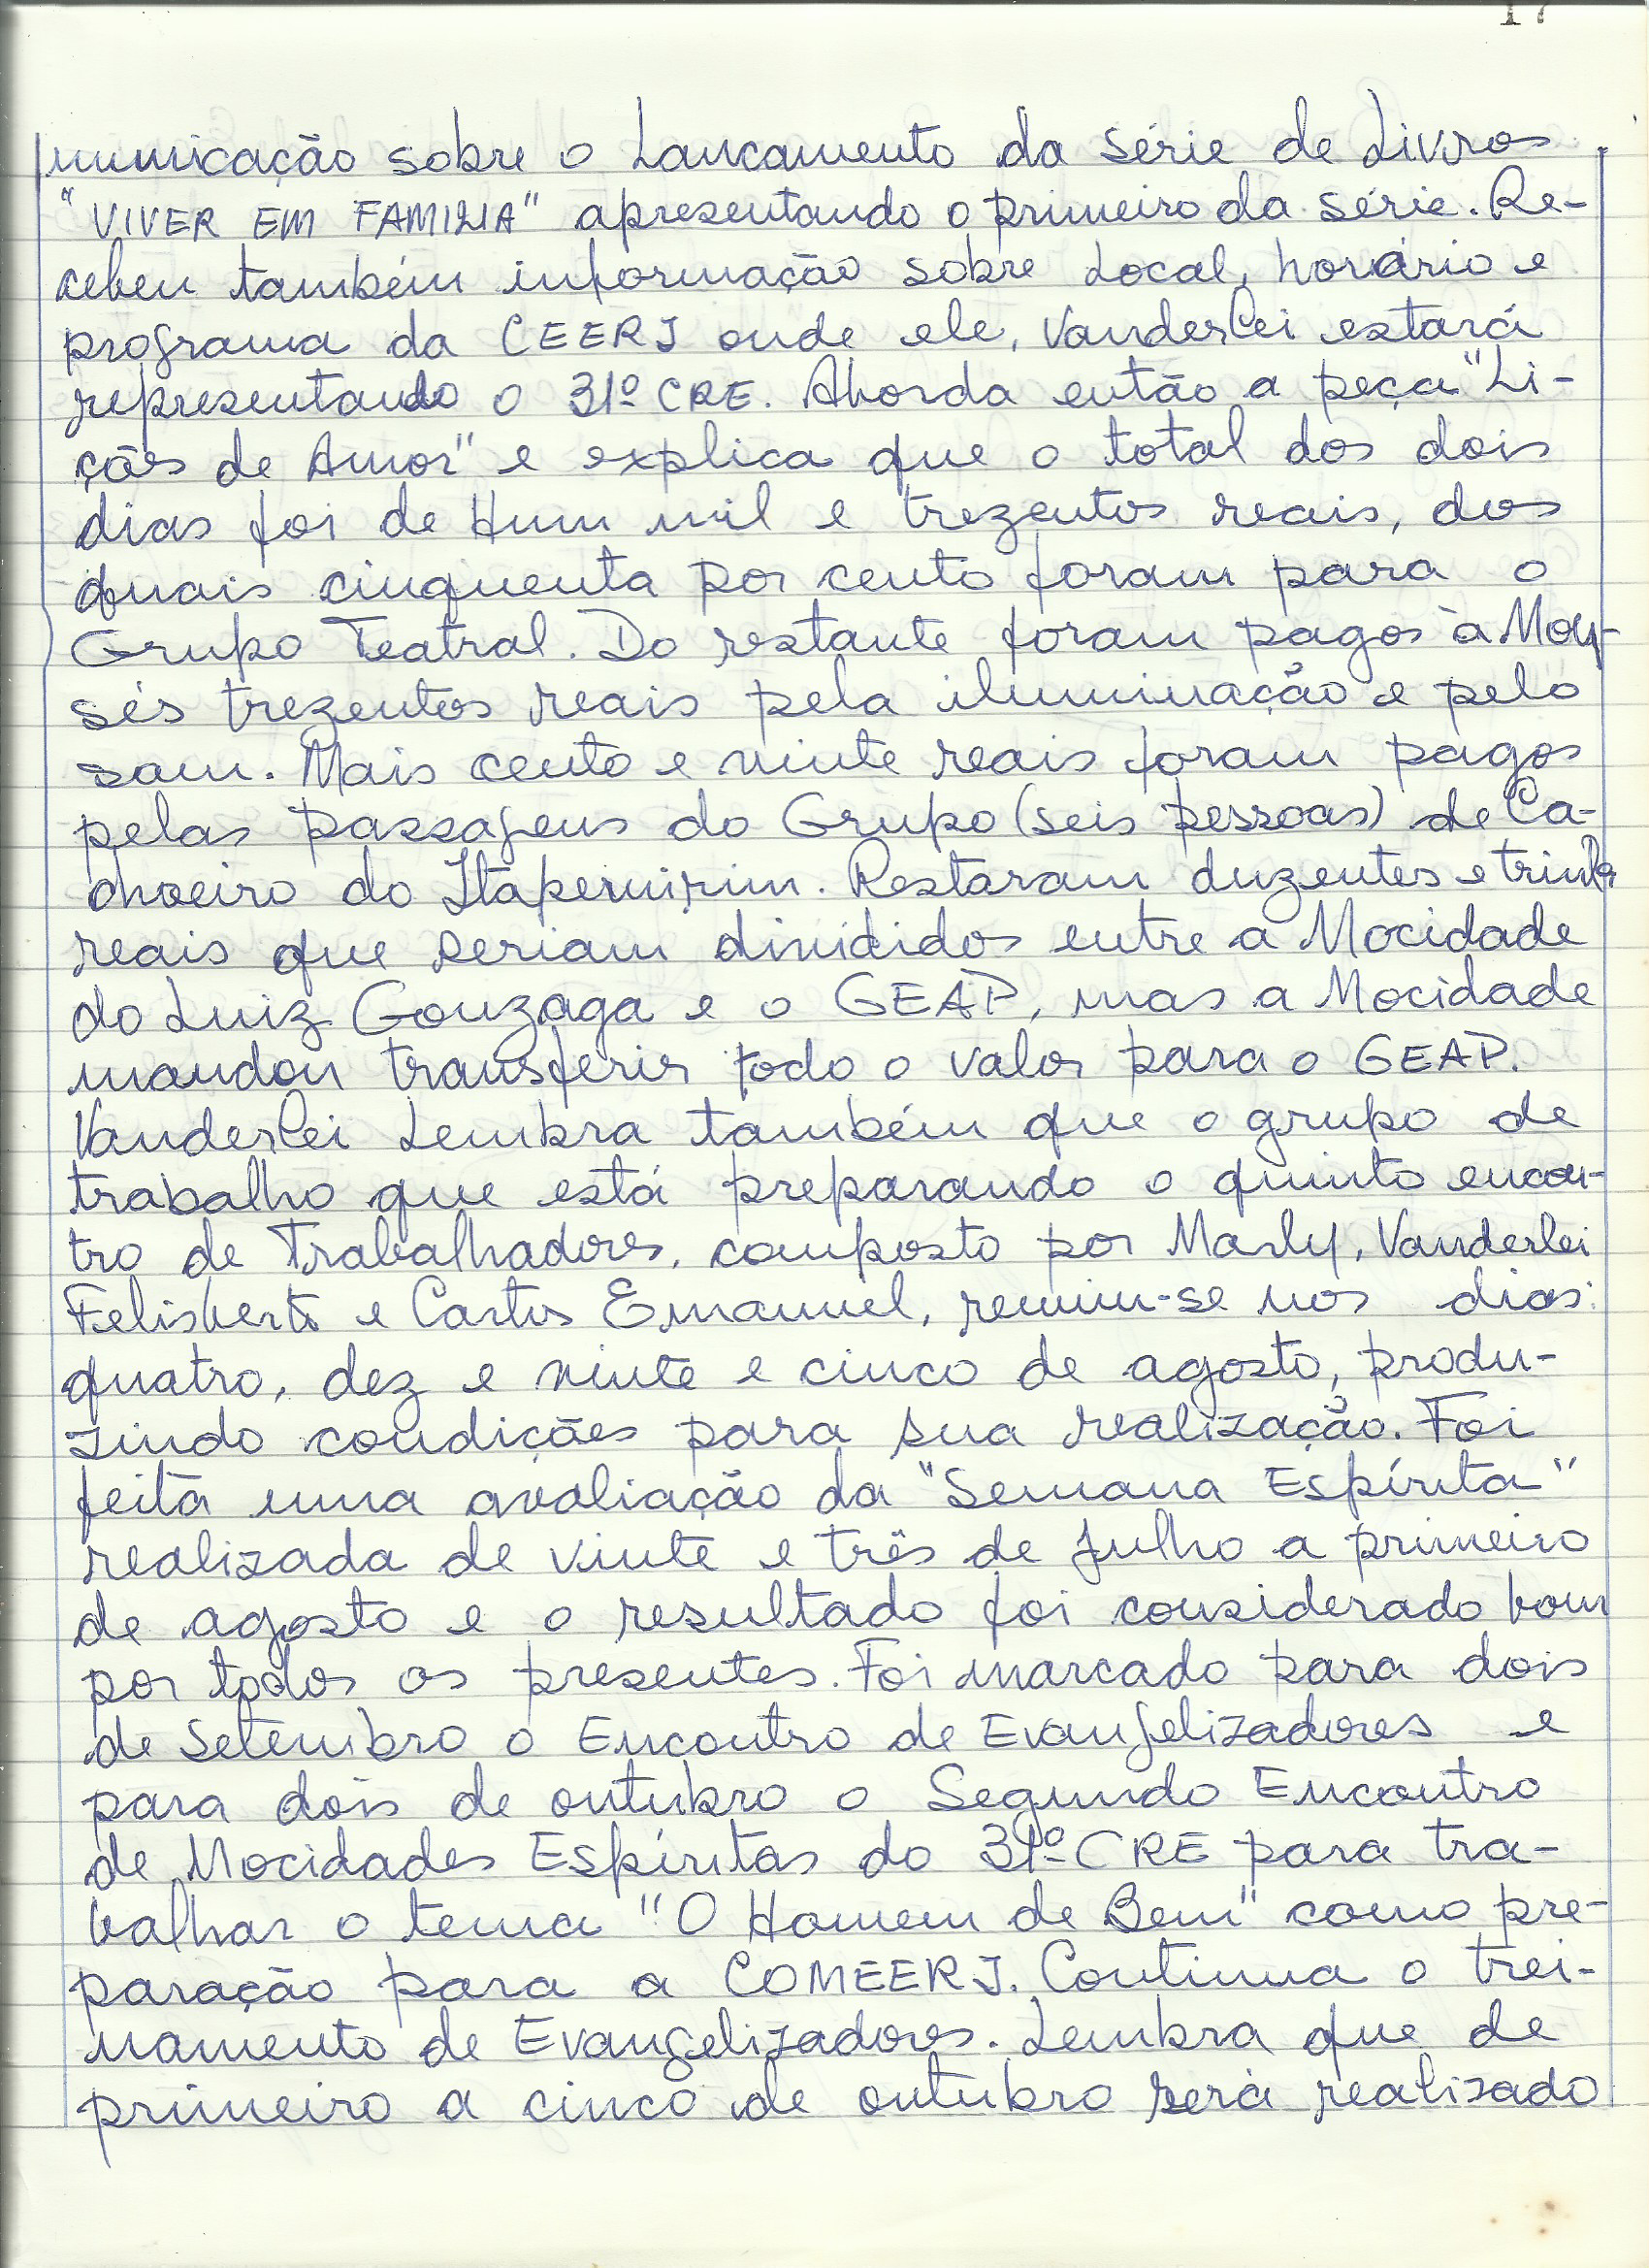 17
municação sobre o Lançamento da série de Livros
"VIVER EM FAMILIA" apresentando o primeiro da série. Re-
cebeu também informação sobre Local, horário e
programa da CEERJ onde ele, Vanderlei estará
representando o 31º CRE. Aborda então a peça "Li-
ções de Amor" e explica que o total dos dois
dias foi de Hum mil e trezentos reais, dos
quais cinquenta por cento foram para o
Grupo Teatral. Do restante foram pagos à Moy-
sés trezentos reais pela iluminação e pelo
som. Mais cento e vinte reais foram pagos
pelas passagens do Grupo (seis pessoas) de Ca-
choeiro do Itapemirim. Restaram duzentos e trinta
reais que seriam divididos entre a Mocidade
do Luiz Gonzaga e o GEAP, mas a Mocidade
mandou transferir todo o valor para o GEAP.
Vanderlei Lembra também que o grupo de
trabalho que está preparando o quinto encon-
tro de Trabalhadores, composto por Marly, Vanderlei
Felisberto e Carlos Emanuel, reuniu-se nos dias:
quatro, dez e vinte e cinco de agosto, produ-
zindo condições para sua realização. Foi
feita uma avaliação da "Semana Espírita"
realizada de vinte e três de Julho a primeiro
de agosto e o resultado foi considerado bom
por todos os presentes. Foi marcado para dois
de Setembro o Encontro de Evangelizadores e
para dois de outubro o Segundo Encontro
de Mocidades Espíritas do 31º CRE para tra-
balhar o tema "O Homem de Bem" como pre-
paração para a COMEERJ. Continua o trei-
namento de Evangelizadores. Lembra que de
primeiro a cinco de outubro será realizado